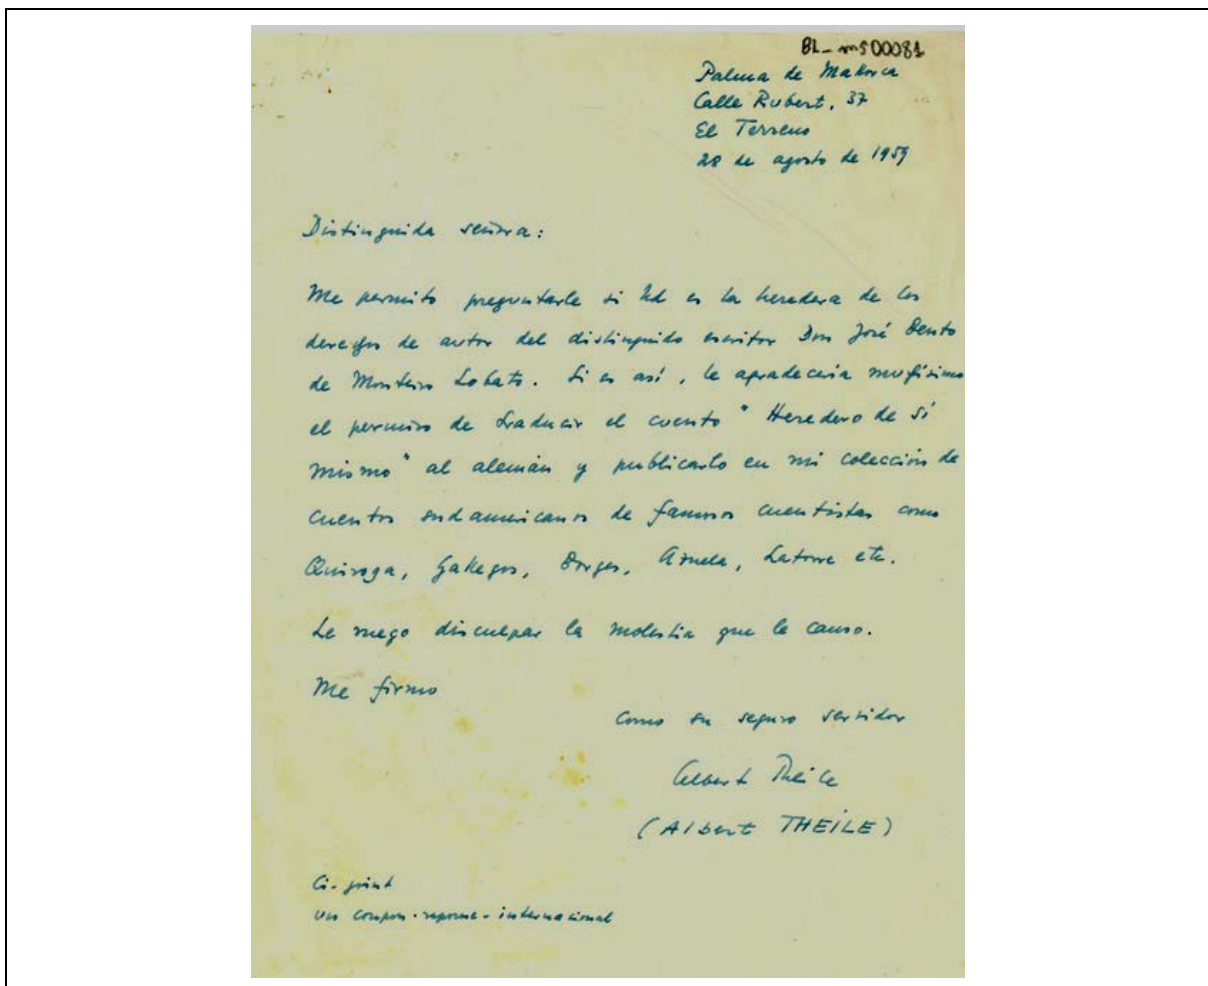 BL-ms00081
Palma de Mallorca
Calle Rubert, 37
El Terreno
28 de agosto de 1959
Distinguida señora:
Me permito preguntarle si Ud es la heredera de los
derechos de autor del distinguido escritor Don José Bento
de Monteiro Lobato. Si es así, le agradecería muchísimo
el permiso de traducir el cuento "Heredero de sí
mismo" al alemán y publicarlo en mi colección de
cuentos sudamericanos de famosos cuentistas como
Quiroga, Gallegos, Borges, Azuela, Latorre etc.
Le ruego disculpar la molestia que le causo.
Me firmo
como su seguro servidor
Albert Theile
(Albert THEILE)
Ci-joint
un coupon-reponse-internacional